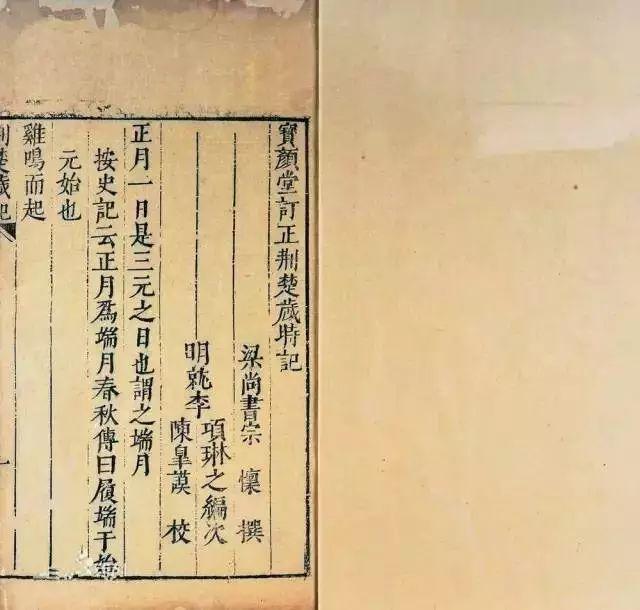 寶顏堂訂正荆楚歲時記
梁尚書宗懍撰
明就李
項琳之編次
陳臯謨校
正月一日是三元之日也謂之端月
按史記云正月爲端月春秋傳曰履端于始
元始也
雞鳴而起
荆楚歲記
一